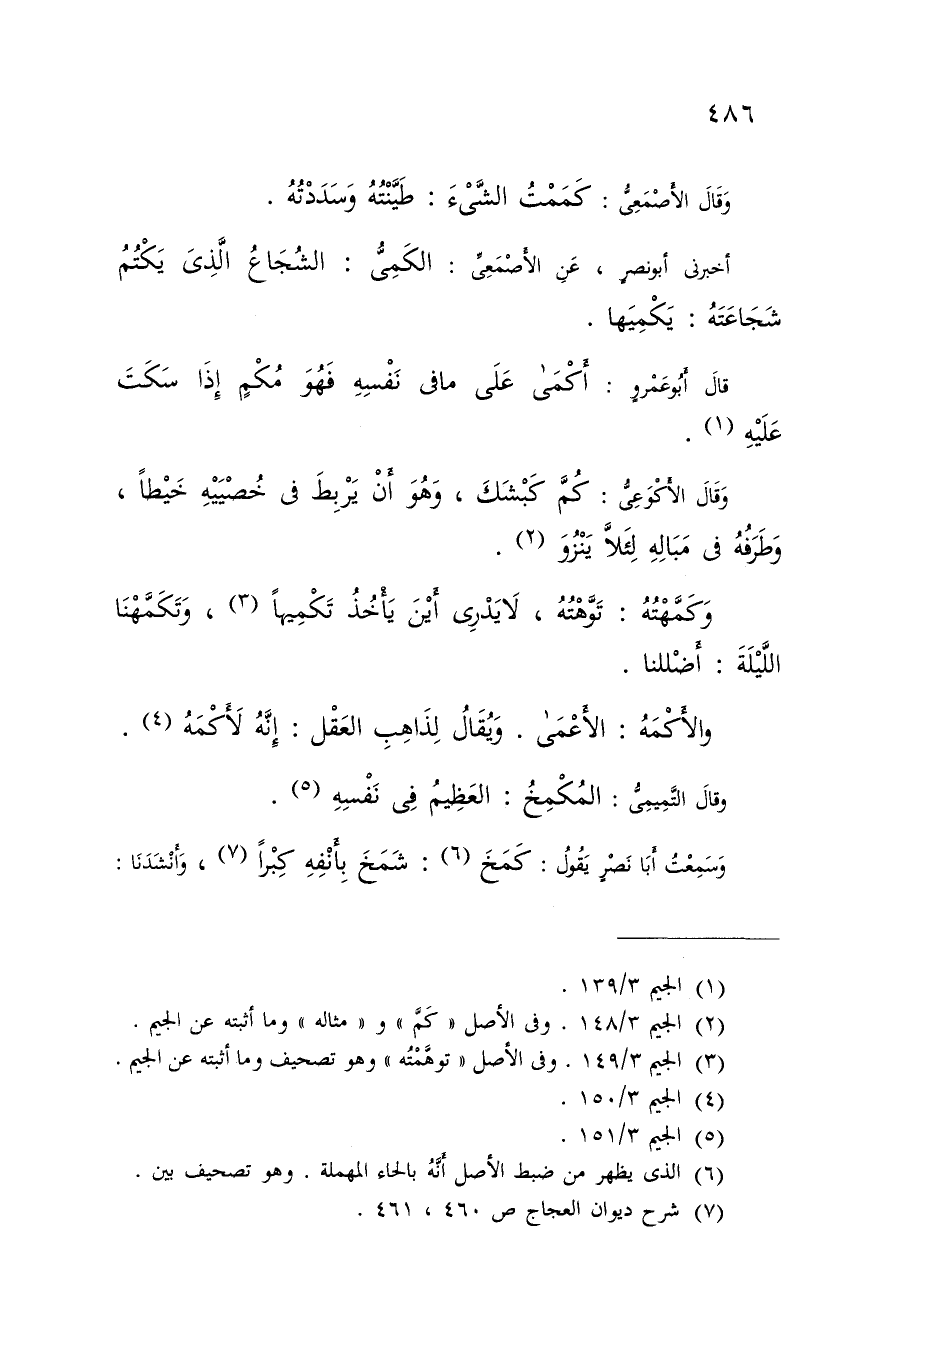 ٤٨٦
وَقَالَ الأَصْمَعِىُّ : كَمَمْتُ الشَّىْءَ : طَيَّنْتُهُ وَسَدَدْتُهُ .
أخبرنى أبونصرٍ ، عَنِ الأَصْمَعِىِّ : الكَمِىُّ : الشُجَاعُ الَّذِىَ يَكْتُمُ
شَجَاعَتَهُ : يَكْمِيَها .
قالَ أَبُوعَمْروٍ : أَكْمَىٰ عَلَى مافى نَفْسِهِ فَهُوَ مُكْمٍ إِذَا سَكَتَ
عَلَيْهِ (١) .
وَقَالَ الأَكْوَعِىُّ : كُمَّ كَبْشَكَ ، وَهُوَ أَنْ يَرْبِطَ فى خُصْيَيْهِ خَيْطاً ،
وَطَرَفُهُ فى مَبَالِهِ لِئَلاَّ يَنْزُوَ (٢) .
وَكَمَّهْتُهُ : تَوَّهْتُهُ ، لَايَدْرِى أَيْنَ يَأْخُذُ تَكْمِيهاً (٣) ، وَتَكَمَّهْنَا
اللَّيْلَةَ : أَضْللنا .
والأَكْمَهُ : الأَعْمَىٰ . وَيُقَالُ لِذَاهِبِ العَقْل : إِنَّهُ لَأَكْمَهُ (٤) .
وقالَ التَّمِيمِىُّ : المُكْمِخُ : العَظِيمُ فِى نَفْسِهِ (٥) .
وَسَمِعْتُ أَبَا نَصْرٍ يَقُولُ : كَمَخَ (٦) : شَمَخَ بِأَنْفِهِ كِبْراً (٧) ، وَأَنْشَدَنَا :
(١) الجيم ١٣٩/٣ .
(٢) الجيم ١٤٨/٣ . وفى الأصل « كَمَّ » و « مثاله » وما أثبته عن الجيم .
(٣) الجيم ١٤٩/٣ . وفى الأصل « توهَّمْتُه » وهو تصحيف وما أثبته عن الجيم .
(٤) الجيم ١٥٠/٣ .
(٥) الجيم ١٥١/٣ .
(٦) الذى يظهر من ضبط الأصل أَنَّهُ بالحاء المهملة . وهو تصحيف بين .
(٧) شرح ديوان العجاج ص ٤٦٠ ، ٤٦١ .